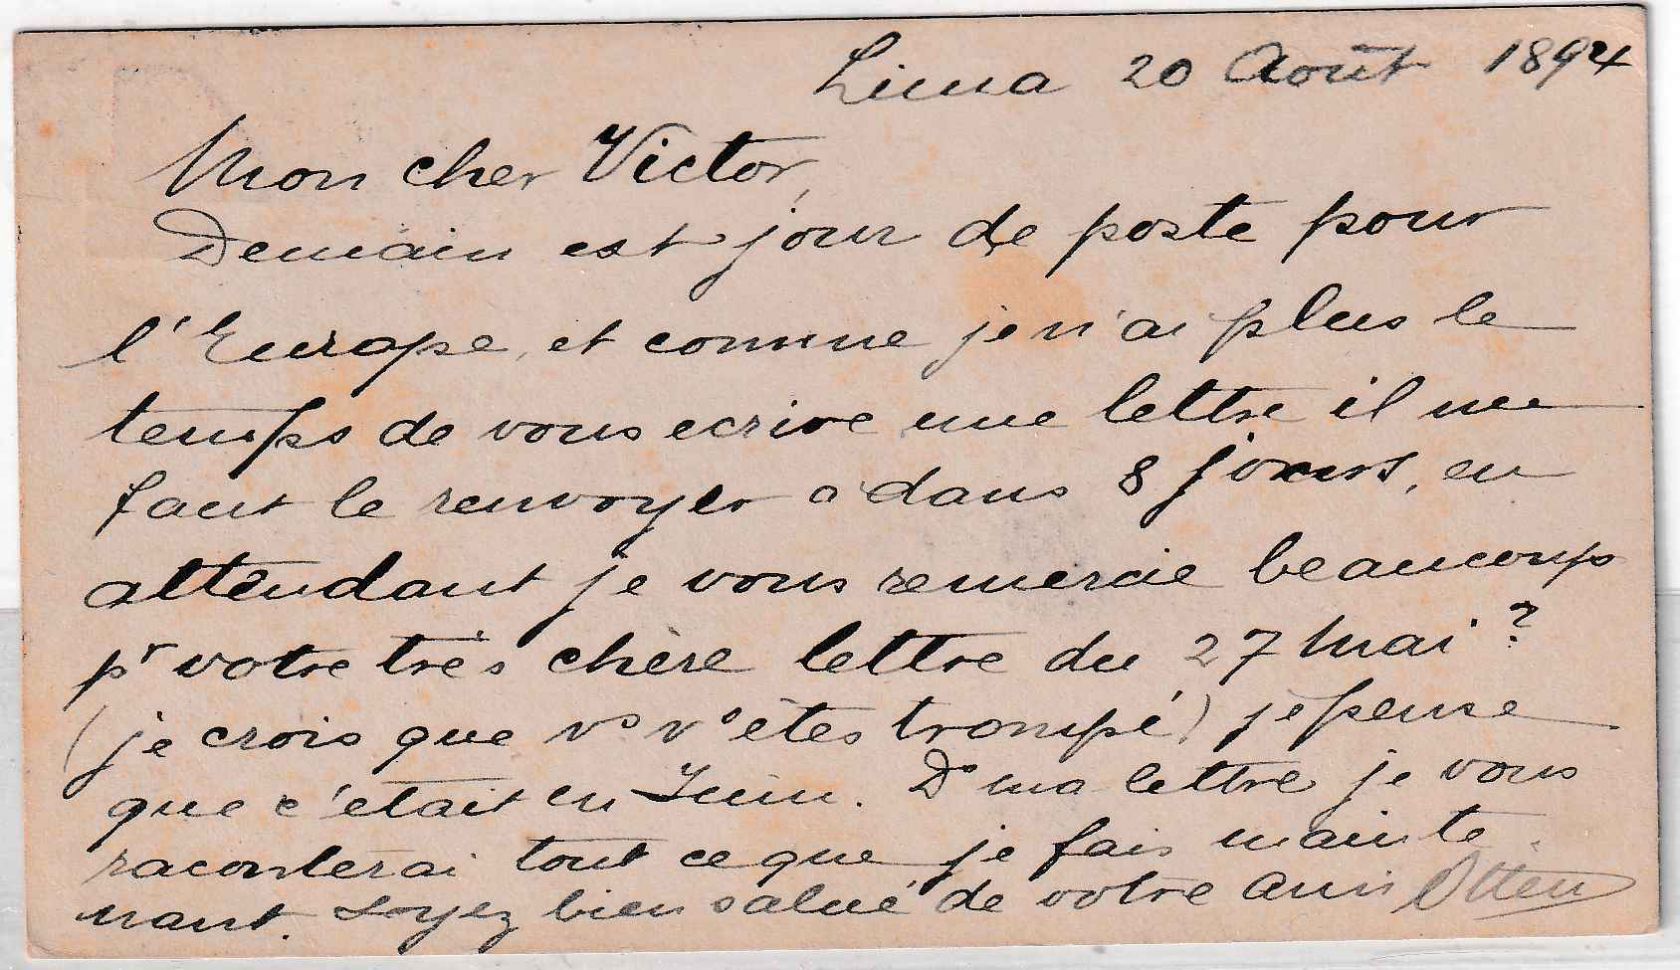 Lima 20 Août 1894
Mon cher Victor,
Demain est jour de poste pour
l'Europe, et comme je n'ai plus le
temps de vous ecrire une lettre il me
faut le renvoyer à dans 8 jours, en
attendant je vous remercie beaucoup
pr votre très chère lettre du 27 Mai?
(je crois que vs vs êtes trompé) je pense
que c'était en Juin. Ds ma lettre je vous
raconterai tout ce que je fais mainte-
nant. Soyez bien salué de votre ami Otten